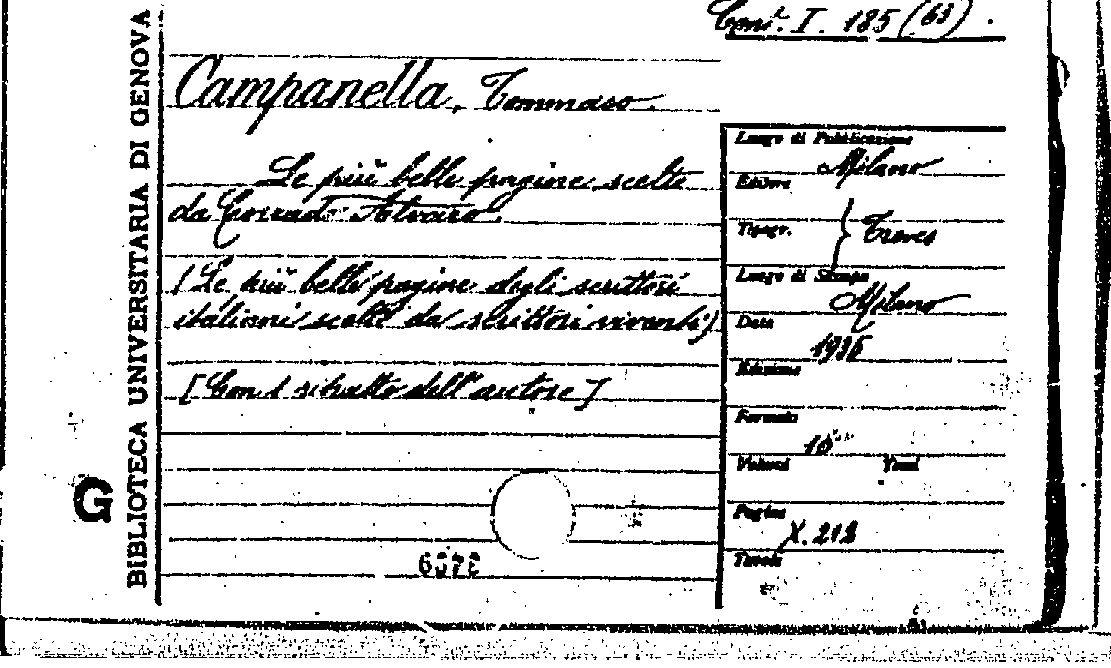 BIBLIOTECA UNIVERSITARIA DI GENOVA
G
Cont. I. 185 (63).
Campanella, Tommaso.
Le più belle pagine scelte
da Corrado Alvaro.
(Le più belle pagine degli scrittori
italiani scelte da scrittori viventi)
[Con 1 ritratto dell'autore]
Luogo di Pubblicazione
Milano
Editore
Tipogr.
} Treves
Luogo di Stampa
Milano
Data
Edizione
Formato
16°
Volumi Tomi
Pagine
X. 212
Tavole